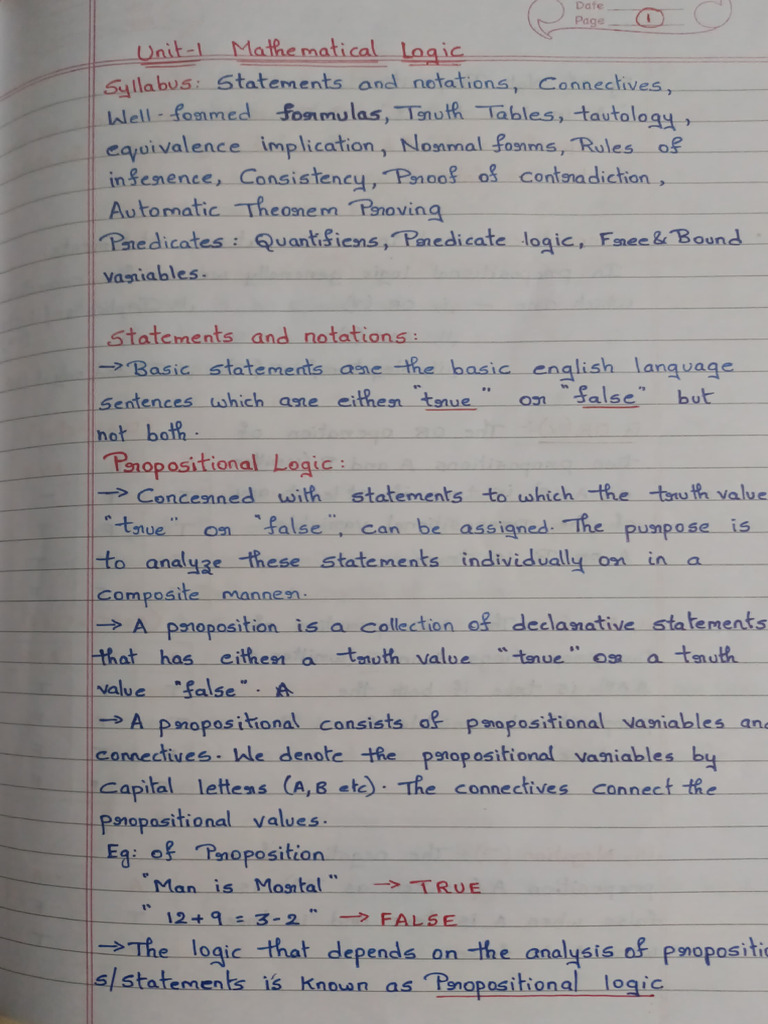 Date
Page 1
Unit-1 Mathematical Logic
Syllabus: Statements and notations, Connectives,
Well-formed formulas, Truth Tables, tautology,
equivalence implication, Normal forms, Rules of
inference, Consistency, Proof of contradiction,
Automatic Theorem Proving
Predicates: Quantifiers, Predicate logic, Free & Bound
variables.
Statements and notations:
→ Basic statements are the basic english language
sentences which are either "true" or "false" but
not both.
Propositional Logic:
→ Concerned with statements to which the truth value
"true" or "false", can be assigned. The purpose is
to analyze these statements individually or in a
composite manner.
→ A proposition is a collection of declarative statements
that has either a truth value "true" or a truth
value "false". A
→ A propositional consists of propositional variables an
connectives. We denote the propositional variables by
Capital letters (A, B etc). The connectives connect the
propositional values.
Eg: of Proposition
"Man is Mortal" → TRUE
"12+9 = 3-2" → FALSE
→ The logic that depends on the analysis of propositio
s/statements is known as Propositional logic